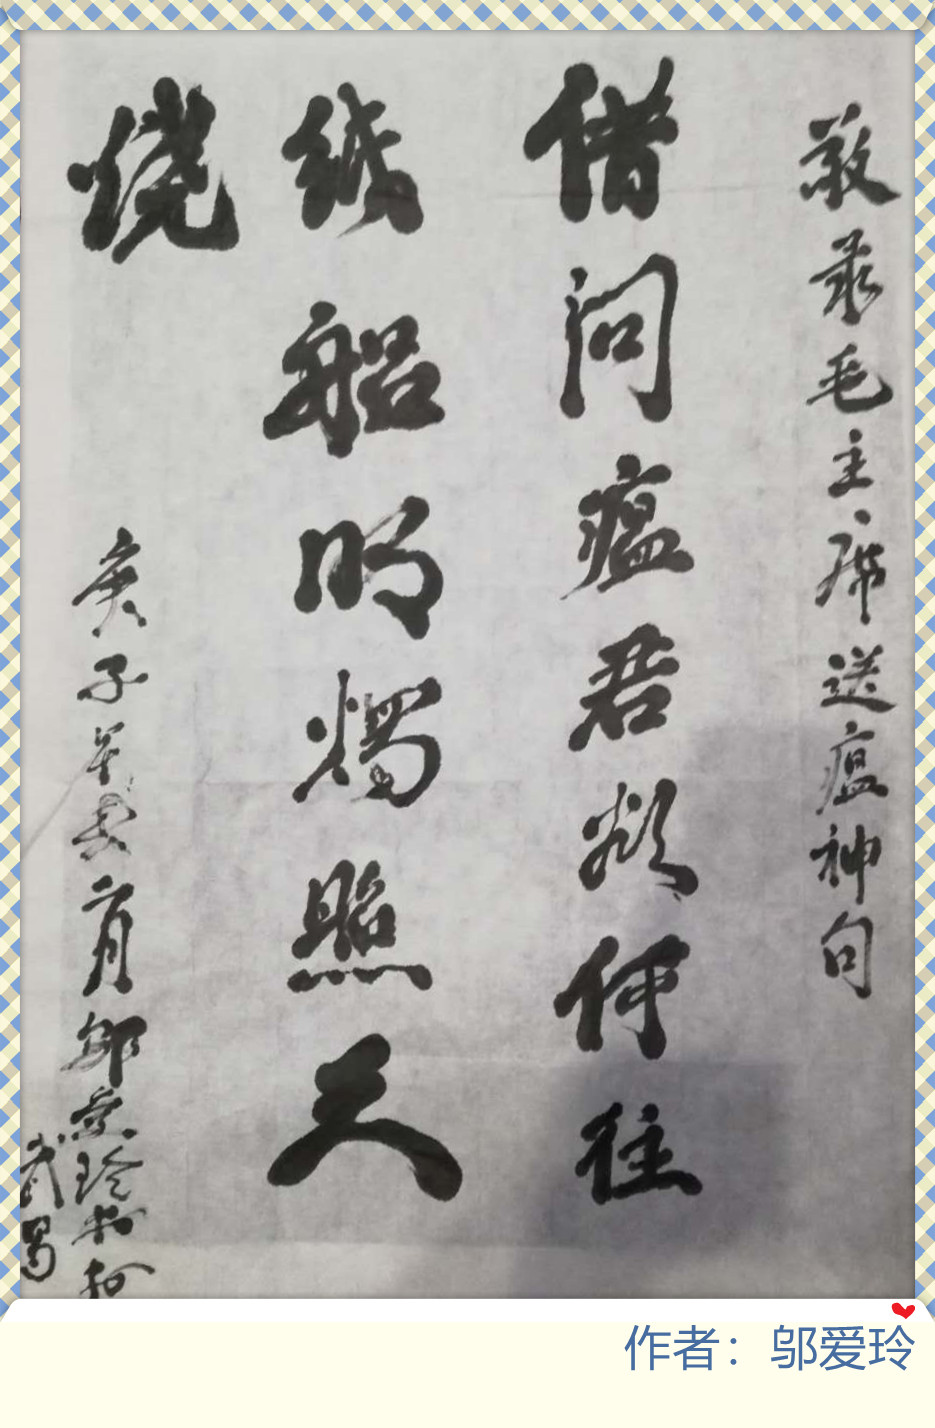 敬录毛主席送瘟神句
借问瘟君欲何往
纸船明烛照天
烧
庚子年二月邬爱玲书於
武昌
作者：邬爱玲